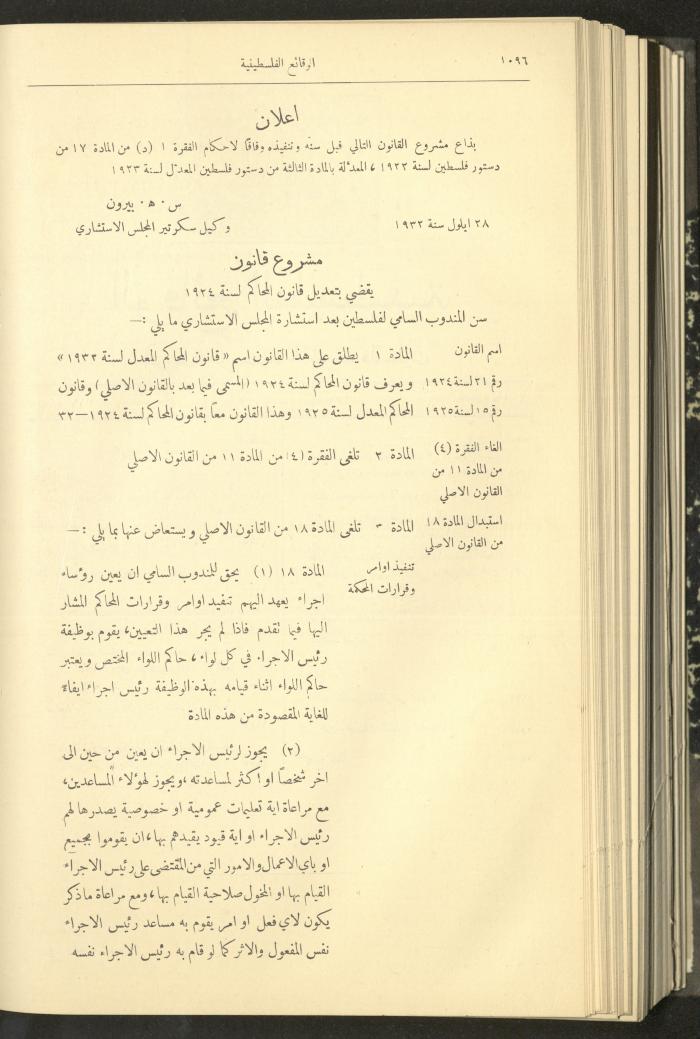 ١٠٩٦
الوقائع الفلسطينية
اعلان
يذاع مشروع القانون التالي قبل سنه وتنفيذه وفاقًا لاحكام الفقرة ١ (د) من المادة ١٧ من
دستور فلسطين لسنة ١٩٢٢ ، المعدلة بالمادة الثالثة من دستور فلسطين المعدل لسنة ١٩٢٣
س ٠ ه ٠ بيرون
٢٨ ايلول سنة ١٩٣٢
وكيل سكرتير المجلس الاستشاري
مشروع قانون
يقضي بتعديل قانون المحاكم لسنة ١٩٢٤
سن المندوب السامي لفلسطين بعد استشارة المجلس الاستشاري ما يلي :—
اسم القانون
المادة ١ يطلق على هذا القانون اسم «قانون المحاكم المعدل لسنة ١٩٣٢»
رقم ٢١ لسنة ١٩٢٤
ويعرف قانون المحاكم لسنة ١٩٢٤ (المسمى فيما بعد بالقانون الاصلي) وقانون
رقم ١٥ لسنة ١٩٢٥
المحاكم المعدل لسنة ١٩٢٥ وهذا القانون معًا بقانون المحاكم لسنة ١٩٢٤—٣٢
الغاء الفقرة (٤)
من المادة ١١ من
القانون الاصلي
المادة ٢ تلغى الفقرة (٤) من المادة ١١ من القانون الاصلي
استبدال المادة ١٨
من القانون الاصلي
المادة ٣ تلغى المادة ١٨ من القانون الاصلي ويستعاض عنها بما يلي :—
تنفيذ اوامر
وقرارات المحكمة
المادة ١٨ (١) يحق للمندوب السامي ان يعين رؤساء
اجراء يعهد اليهم تنفيذ اوامر وقرارات المحاكم المشار
اليها فيما تقدم فاذا لم يجر هذا التعيين، يقوم بوظيفة
رئيس الاجراء في كل لواء، حاكم اللواء المختص ويعتبر
حاكم اللواء اثناء قيامه بهذه الوظيفة رئيس اجراء ايفاءً
للغاية المقصودة من هذه المادة
(٢) يجوز لرئيس الاجراء ان يعين من حين الى
اخر شخصًا او أكثر لمساعدته ، ويجوز لهؤلاء المساعدين،
مع مراعاة اية تعليمات عمومية او خصوصية يصدرها لهم
رئيس الاجراء او اية قيود يقيدهم بها، ان يقوموا بجميع
او باي الاعمال والامور التي من المقتضى على رئيس الاجراء
القيام بها او المخول صلاحية القيام بها، ومع مراعاة ما ذكر
يكون لاي فعل او امر يقوم به مساعد رئيس الاجراء
نفس المفعول والاثر كما لو قام به رئيس الاجراء نفسه